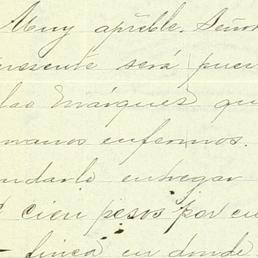 Muy aprcble. Señor
presente será pues
lao Enríquez qu
manos enfermos.
ndarle entregar
cien pesos por cu
finca en donde